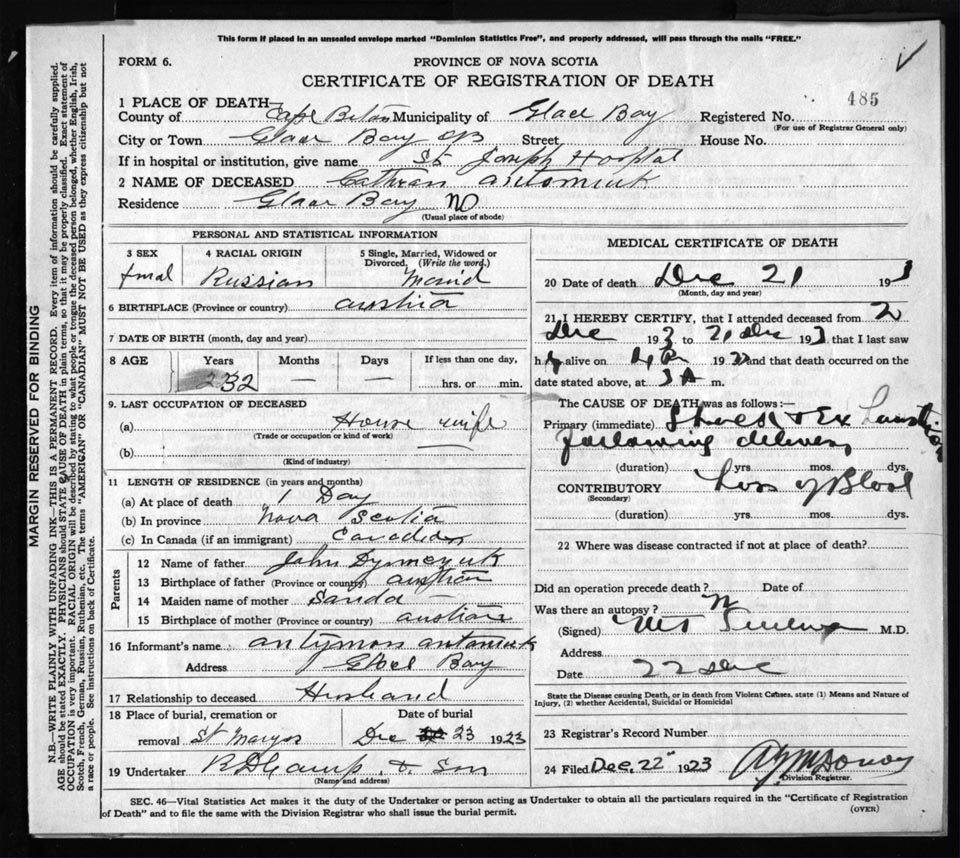 This form if placed in an unsealed envelope marked "Dominion Statistics Free", and properly addressed, will pass through the mails "FREE."
FORM 6.
PROVINCE OF NOVA SCOTIA
CERTIFICATE OF REGISTRATION OF DEATH
485
1 PLACE OF DEATH—
County of Cape Breton Municipality of Glace Bay Registered No.
(For use of Registrar General only)
City or Town Glace Bay CB Street House No.
If in hospital or institution, give name St Joseph Hosptal
2 NAME OF DECEASED Cathren Antoniuk
Residence Glace Bay NO
(Usual place of abode)
PERSONAL AND STATISTICAL INFORMATION
3 SEX
fmal
4 RACIAL ORIGIN
Russian
5 Single, Married, Widowed or Divorced. (Write the word.)
Marid
6 BIRTHPLACE (Province or country) austria
7 DATE OF BIRTH (month, day and year)
8 AGE Years Months Days If less than one day,
32 — — hrs. or min.
9. LAST OCCUPATION OF DECEASED
(a) House wife
(Trade or occupation or kind of work)
(b) —
(Kind of industry)
11 LENGTH OF RESIDENCE (in years and months)
(a) At place of death 1 Day
(b) In province Nova Scotia
(c) In Canada (if an immigrant) Canadian
Parents
12 Name of father John
13 Birthplace of father (Province or country) austria
14 Maiden name of mother Sanda
15 Birthplace of mother (Province or country) austria
16 Informant's name antymon antoniuk
Address Glace Bay
17 Relationship to deceased Husband
18 Place of burial, cremation or removal St Marys
Date of burial
Dec 23 1923
19 Undertaker & Son
(Name and address)
MEDICAL CERTIFICATE OF DEATH
20 Date of death Dec 21 193
(Month, day and year)
21 I HEREBY CERTIFY, that I attended deceased from 2
Dec 193 to 21 Dec 193, that I last saw
h alive on 19 and that death occurred on the
date stated above, at 3 A m.
The CAUSE OF DEATH was as follows:—
Primary (immediate) Shock & Exhaustion
following delivery
(duration) yrs. mos. dys.
CONTRIBUTORY Loss of Blood
(Secondary)
(duration) yrs. mos. dys.
22 Where was disease contracted if not at place of death?
Did an operation precede death? Date of
Was there an autopsy? N
(Signed) M.D.
Address
Date 22 Dec
State the Disease causing Death, or in death from Violent Causes, state (1) Means and Nature of Injury, (2) whether Accidental, Suicidal or Homicidal
23 Registrar's Record Number
24 Filed Dec, 22 1923
Division Registrar.
SEC. 46—Vital Statistics Act makes it the duty of the Undertaker or person acting as Undertaker to obtain all the particulars required in the "Certificate of Registration
of Death" and to file the same with the Division Registrar who shall issue the burial permit.
(OVER)
MARGIN RESERVED FOR BINDING
N.B.—WRITE PLAINLY WITH UNFADING INK—THIS IS A PERMANENT RECORD. Every item of information should be carefully supplied.
AGE should be stated EXACTLY. PHYSICIANS should STATE CAUSE OF DEATH in plain terms, so that it may be properly classified. Exact statement of
OCCUPATION is very important. RACIAL ORIGIN will be described by stating to what people or tongue the deceased person belonged, whether English, Irish,
Scotch, French, German, Russian, Ruthenian, etc. The terms "AMERICAN" OR "CANADIAN" MUST NOT BE USED as they express citizenship but not
a race or people. See instructions on back of Certificate.